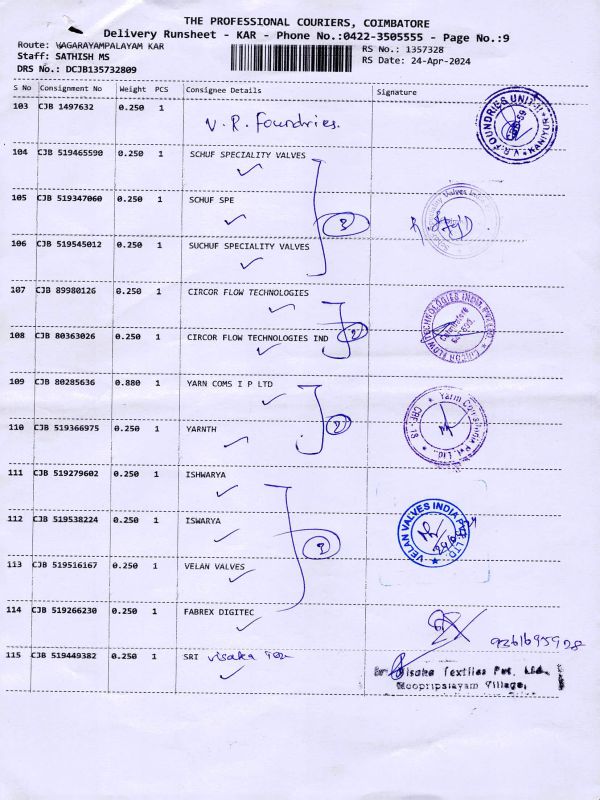 THE PROFESSIONAL COURIERS, COIMBATORE
Delivery Runsheet - KAR - Phone No.:0422-3505555 - Page No.:9
Route: VAGARAYAMPALAYAM KAR
RS No.: 1357328
Staff: SATHISH MS
RS Date: 24-Apr-2024
DRS No.: DCJB135732809
S No Consignment No Weight PCS Consignee Details Signature
103 CJB 1497632 0.250 1 V. R. Foundries.
V.R. FOUNDRIES UNIT-II
104 CJB 519465590 0.250 1 SCHUF SPECIALITY VALVES
105 CJB 519347060 0.250 1 SCHUF SPE
3
106 CJB 519545012 0.250 1 SUCHUF SPECIALITY VALVES
107 CJB 89980126 0.250 1 CIRCOR FLOW TECHNOLOGIES
CIRCOR FLOW TECHNOLOGIES INDIA PVT. LTD.
Coimbatore
108 CJB 80363026 0.250 1 CIRCOR FLOW TECHNOLOGIES IND 2
109 CJB 80285636 0.880 1 YARN COMS I P LTD
Pvt. Ltd.
110 CJB 519366975 0.250 1 YARNTH
111 CJB 519279602 0.250 1 ISHWARYA
112 CJB 519538224 0.250 1 ISWARYA
VELAN VALVES INDIA PVT LTD
113 CJB 519516167 0.250 1 VELAN VALVES
114 CJB 519266230 0.250 1 FABREX DIGITEC
115 CJB 519449382 0.250 1 SRI visaka
Visaka Textiles Pvt. Ltd.
Village,